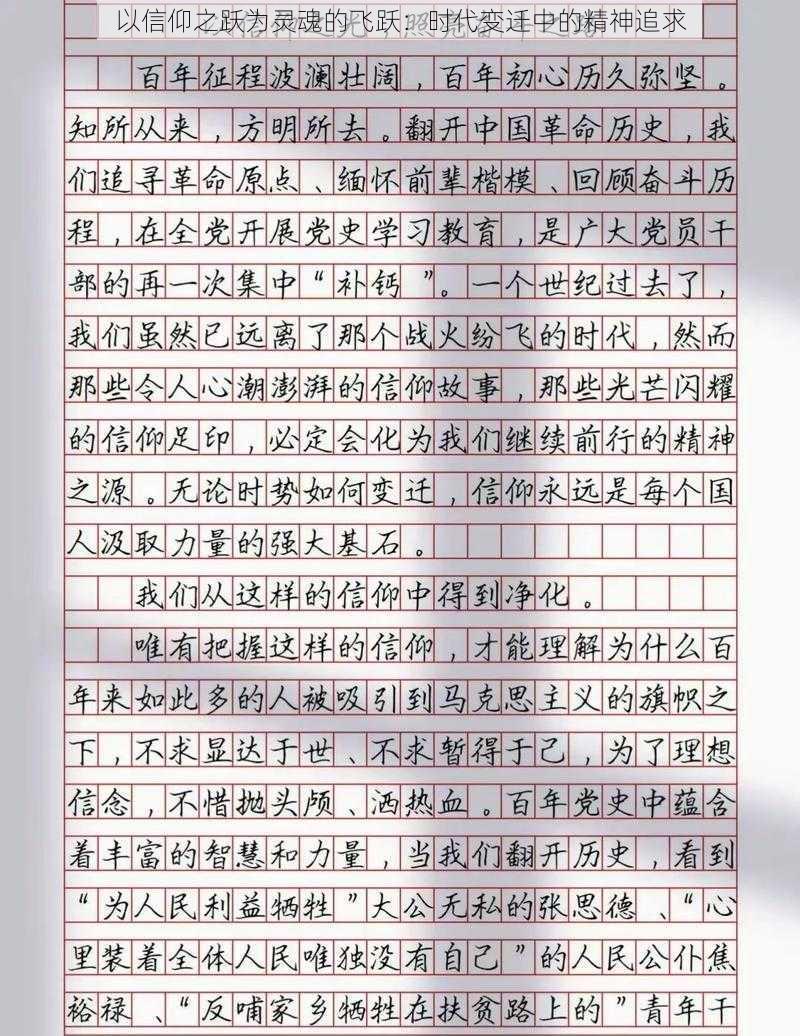 以信仰之跃为灵魂的飞跃：时代变迁中的精神追求
百年征程波澜壮阔，百年初心历久弥坚。
知所从来，方明所去。翻开中国革命历史，我
们追寻革命原点、缅怀前辈楷模、回顾奋斗历
程，在全党开展党史学习教育，是广大党员干
部的再一次集中“补钙”。一个世纪过去了，
我们虽然已远离了那个战火纷飞的时代，然而
那些令人心潮澎湃的信仰故事，那些光芒闪耀
的信仰足印，必定会化为我们继续前行的精神
之源。无论时势如何变迁，信仰永远是每个国
人汲取力量的强大基石。
我们从这样的信仰中得到净化。
唯有把握这样的信仰，才能理解为什么百
年来如此多的人被吸引到马克思主义的旗帜之
下，不求显达于世、不求暂得于己，为了理想
信念，不惜抛头颅、洒热血。百年党史中蕴含
着丰富的智慧和力量，当我们翻开历史，看到
“为人民利益牺牲”大公无私的张思德、“心
里装着全体人民唯独没有自己”的人民公仆焦
裕禄、“反哺家乡牺牲在扶贫路上的”青年干